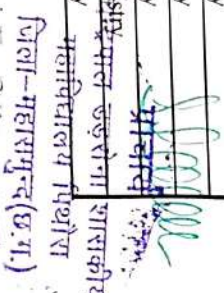 डडसेना शासकीय
महाविद्यालय पिथौरा
जिला-महासमुन्द(छ.ग.)